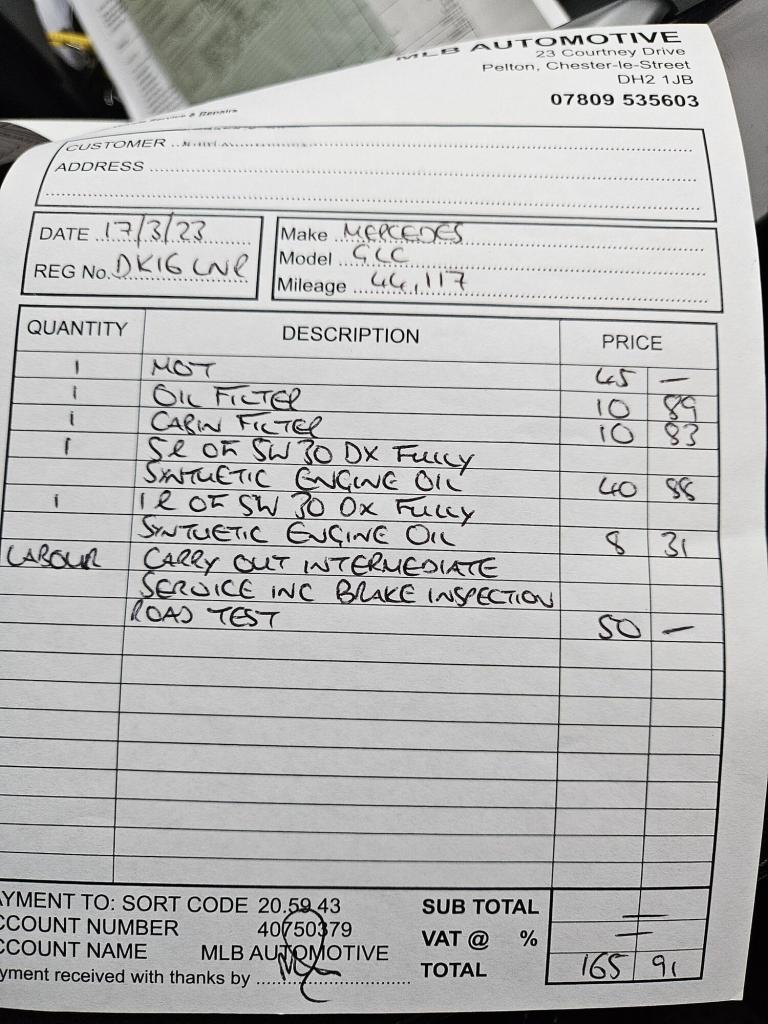 MLB AUTOMOTIVE
23 Courtney Drive
Pelton, Chester-le-Street
DH2 1JB
07809 535603
& Repairs
CUSTOMER
ADDRESS
DATE 17/3/23
REG No. DK16 LNR
Make MERCEDES
Model GLC
Mileage 44,117
QUANTITY DESCRIPTION PRICE
1 MOT 45 —
1 OIL FILTER 10 89
1 CABIN FILTER 10 83
1 5l OF 5W 30 DX FULLY
SYNTHETIC ENGINE OIL 40 88
1 1l OF 5W 30 DX FULLY
SYNTHETIC ENGINE OIL 8 31
LABOUR CARRY OUT INTERMEDIATE
SERVICE INC BRAKE INSPECTION
ROAD TEST 50 —
AYMENT TO: SORT CODE 20.59.43
CCOUNT NUMBER 40750379
CCOUNT NAME MLB AUTOMOTIVE
yment received with thanks by
SUB TOTAL —
VAT @ % —
TOTAL 165 91